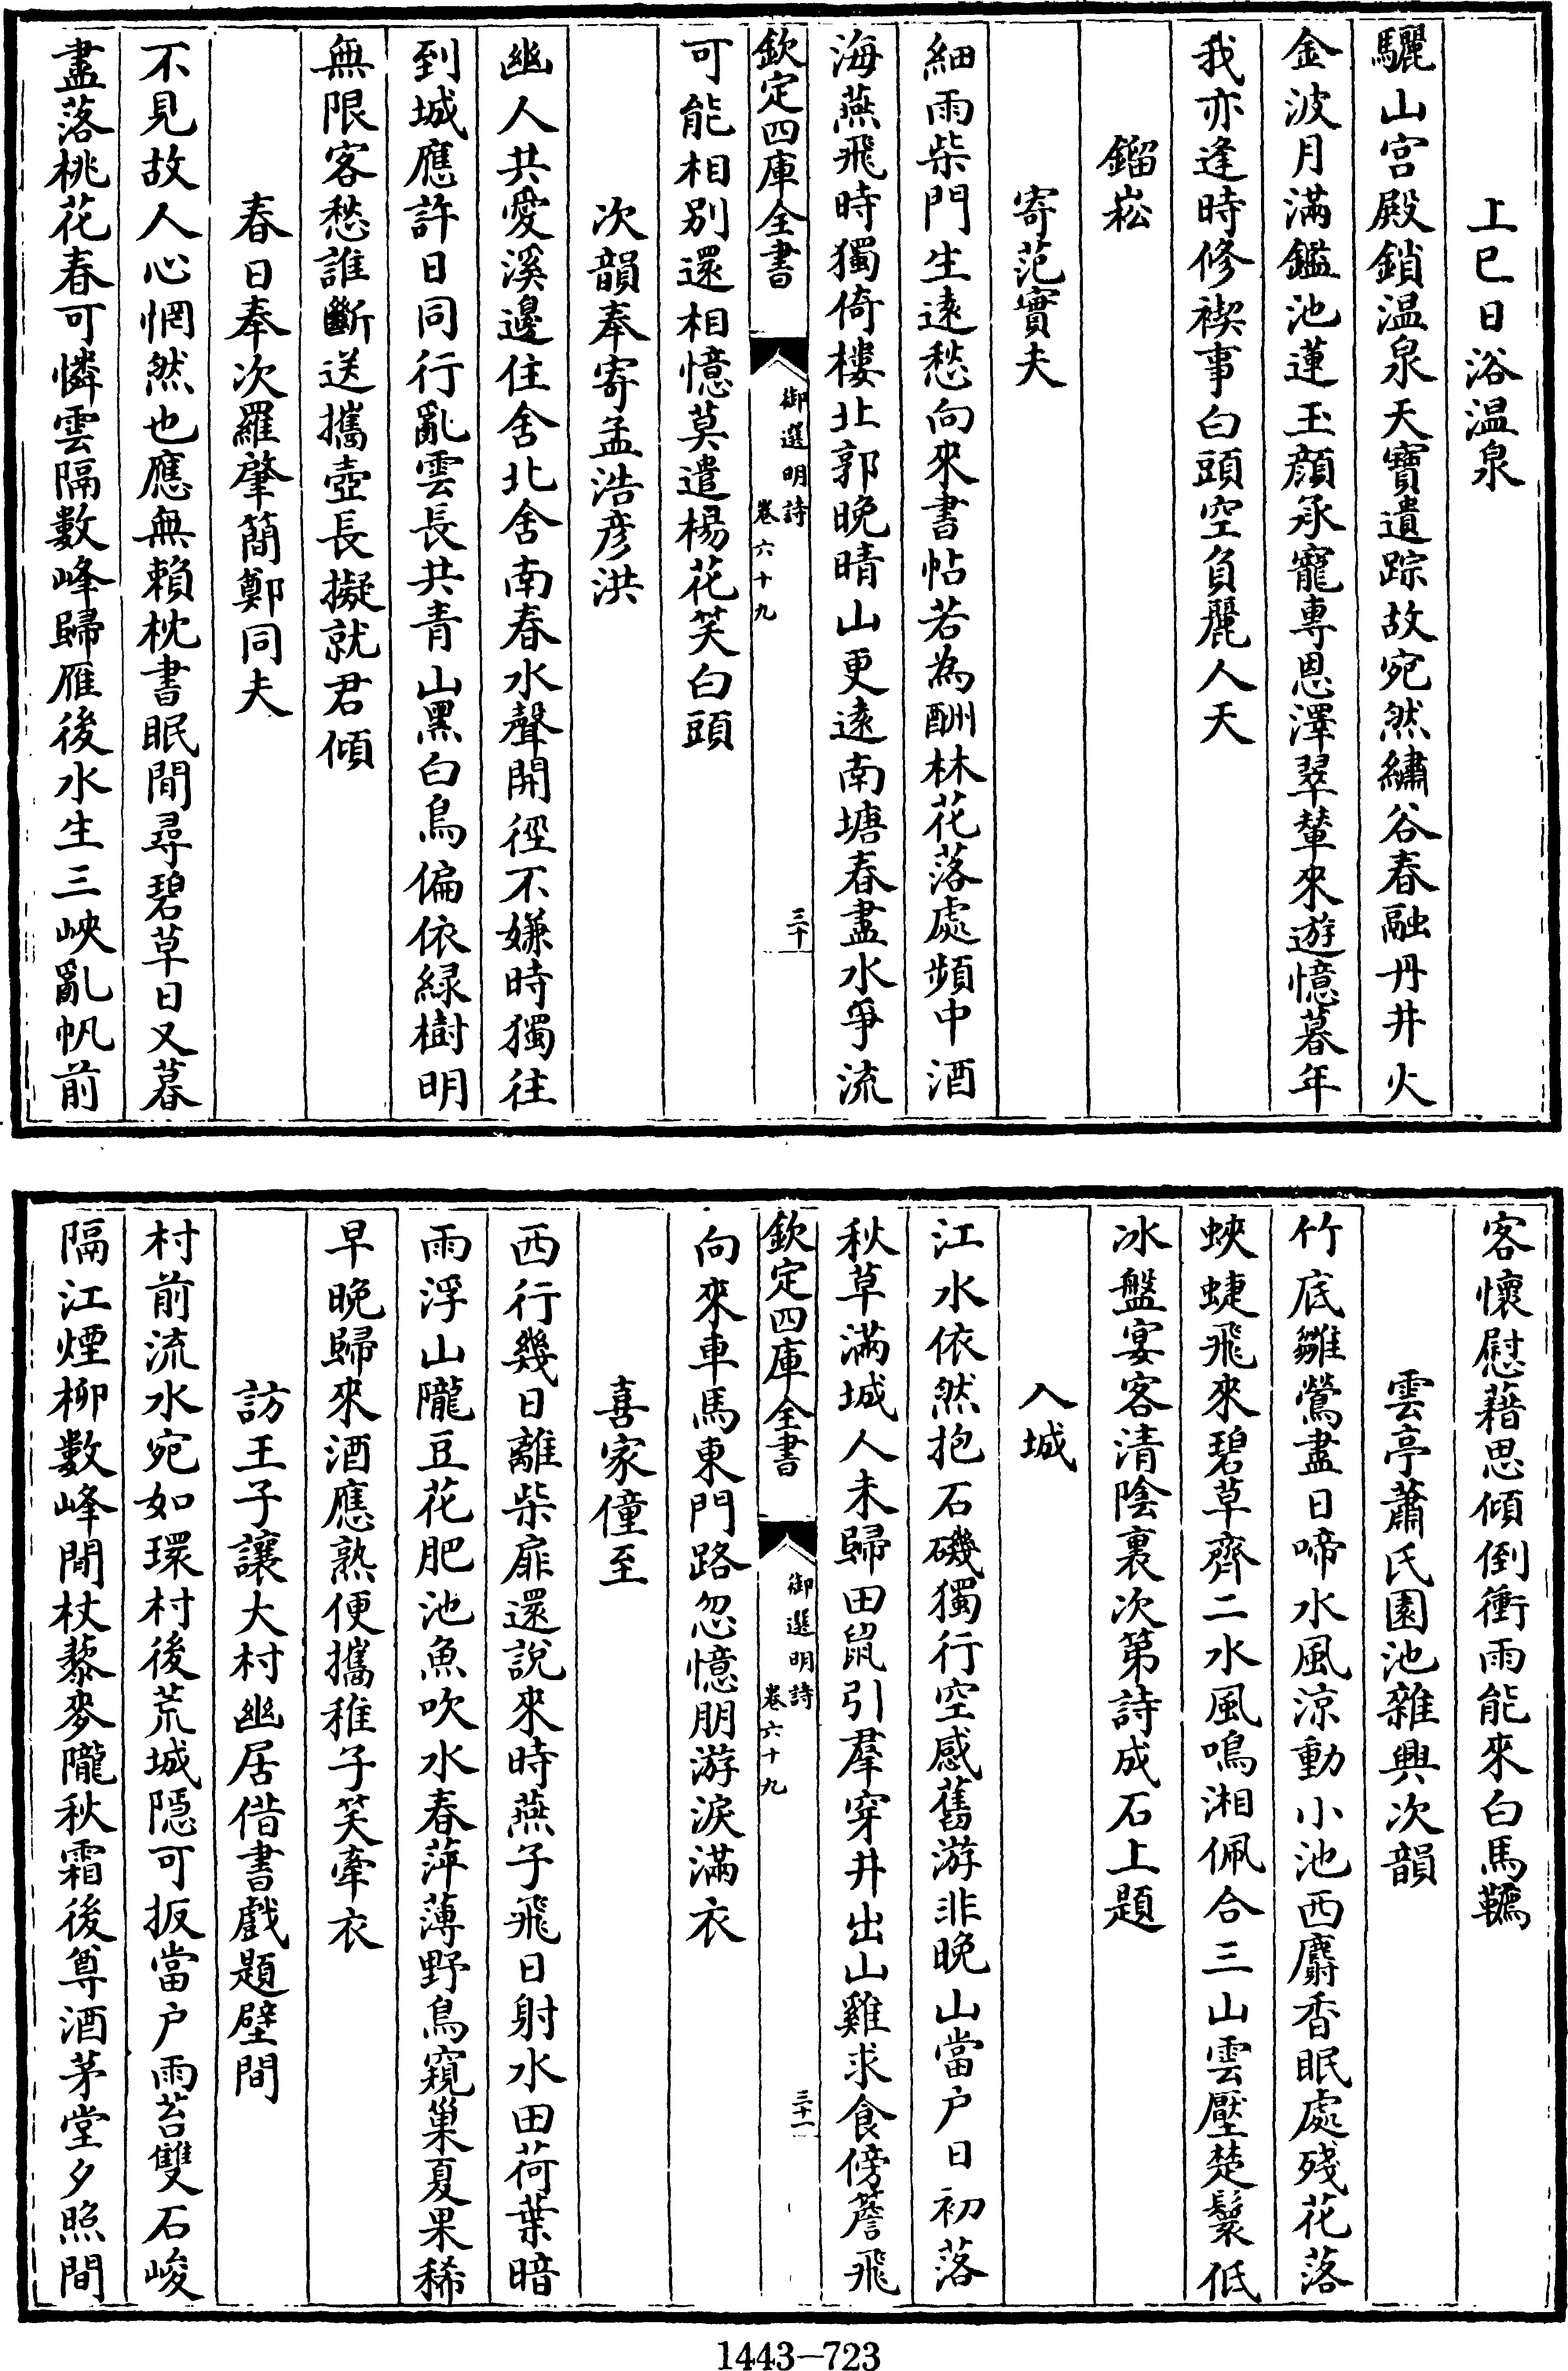 上巳日浴温泉
驪山宫殿鎖温泉天寶遺踪故宛然繡谷春融丹井火
金波月滿鑑池蓮玉顔承寵專恩澤翠輦來遊憶暮年
我亦逢時修禊事白頭空負麗人天
鎦崧
寄范實夫
細雨柴門生遠愁向來書帖若為酬林花落處頻中酒
海燕飛時獨倚樓北郭晚晴山更遠南塘春盡水爭流
欽定四庫全書
御選明詩
卷六十九
三十
可能相别還相憶莫遣楊花笑白頭
次韻奉寄孟浩彦洪
幽人共愛溪邊住舍北舍南春水聲開徑不嫌時獨往
到城應許日同行亂雲長共青山黑白鳥偏依緑樹明
無限客愁誰斷送攜壺長擬就君傾
春日奉次羅肇簡鄭同夫
不見故人心惘然也應無賴枕書眠間尋碧草日又暮
盡落桃花春可憐雲隔數峰歸雁後水生三峽亂帆前
客懷慰藉思傾倒衝雨能來白馬韉
雲亭蕭氏園池雜興次韻
竹底雛鶯盡日啼水風涼動小池西麝香眠處殘花落
蛺蜨飛來碧草齊二水風鳴湘佩合三山雲壓楚鬟低
冰盤宴客清陰裏次第詩成石上題
入城
江水依然抱石磯獨行空感舊游非晚山當户日初落
秋草滿城人未歸田鼠引羣穿井出山雞求食傍簷飛
欽定四庫全書
御選明詩
卷六十九
三十一
向來車馬東門路忽憶朋游淚滿衣
喜家僮至
西行幾日離柴扉還説來時燕子飛日射水田荷葉暗
雨浮山隴豆花肥池魚吹水春萍薄野鳥窺巢夏果稀
早晚歸來酒應熟便攜稚子笑牽衣
訪王子讓大村幽居借書戲題壁間
村前流水宛如環村後荒城隠可扳當户雨苔雙石峻
隔江煙柳數峰閒杖藜麥隴秋霜後尊酒茅堂夕照間
1443-723